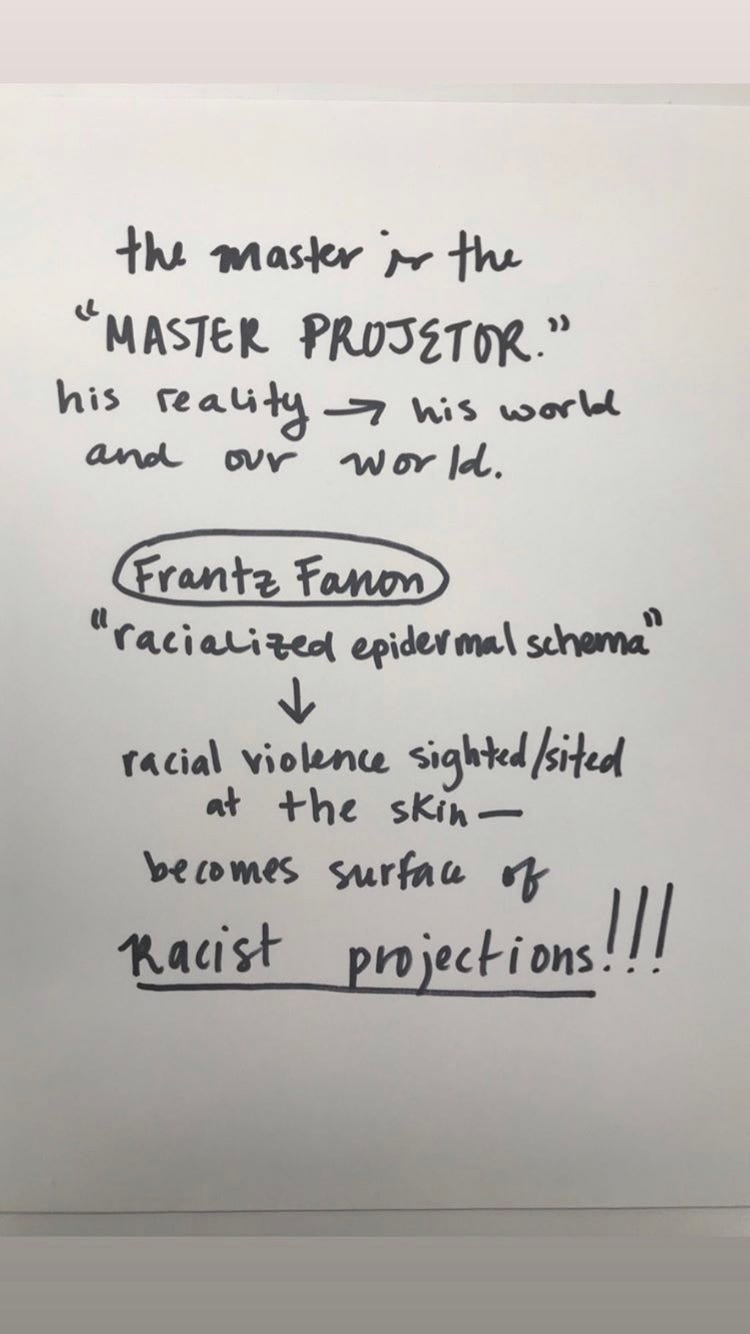 the master is the
“MASTER PROJETOR.”
his reality → his world
and our world.
Frantz Fanon
“racialized epidermal schema”
↓
racial violence sighted/sited
at the skin—
becomes surface of
Racist projections!!!